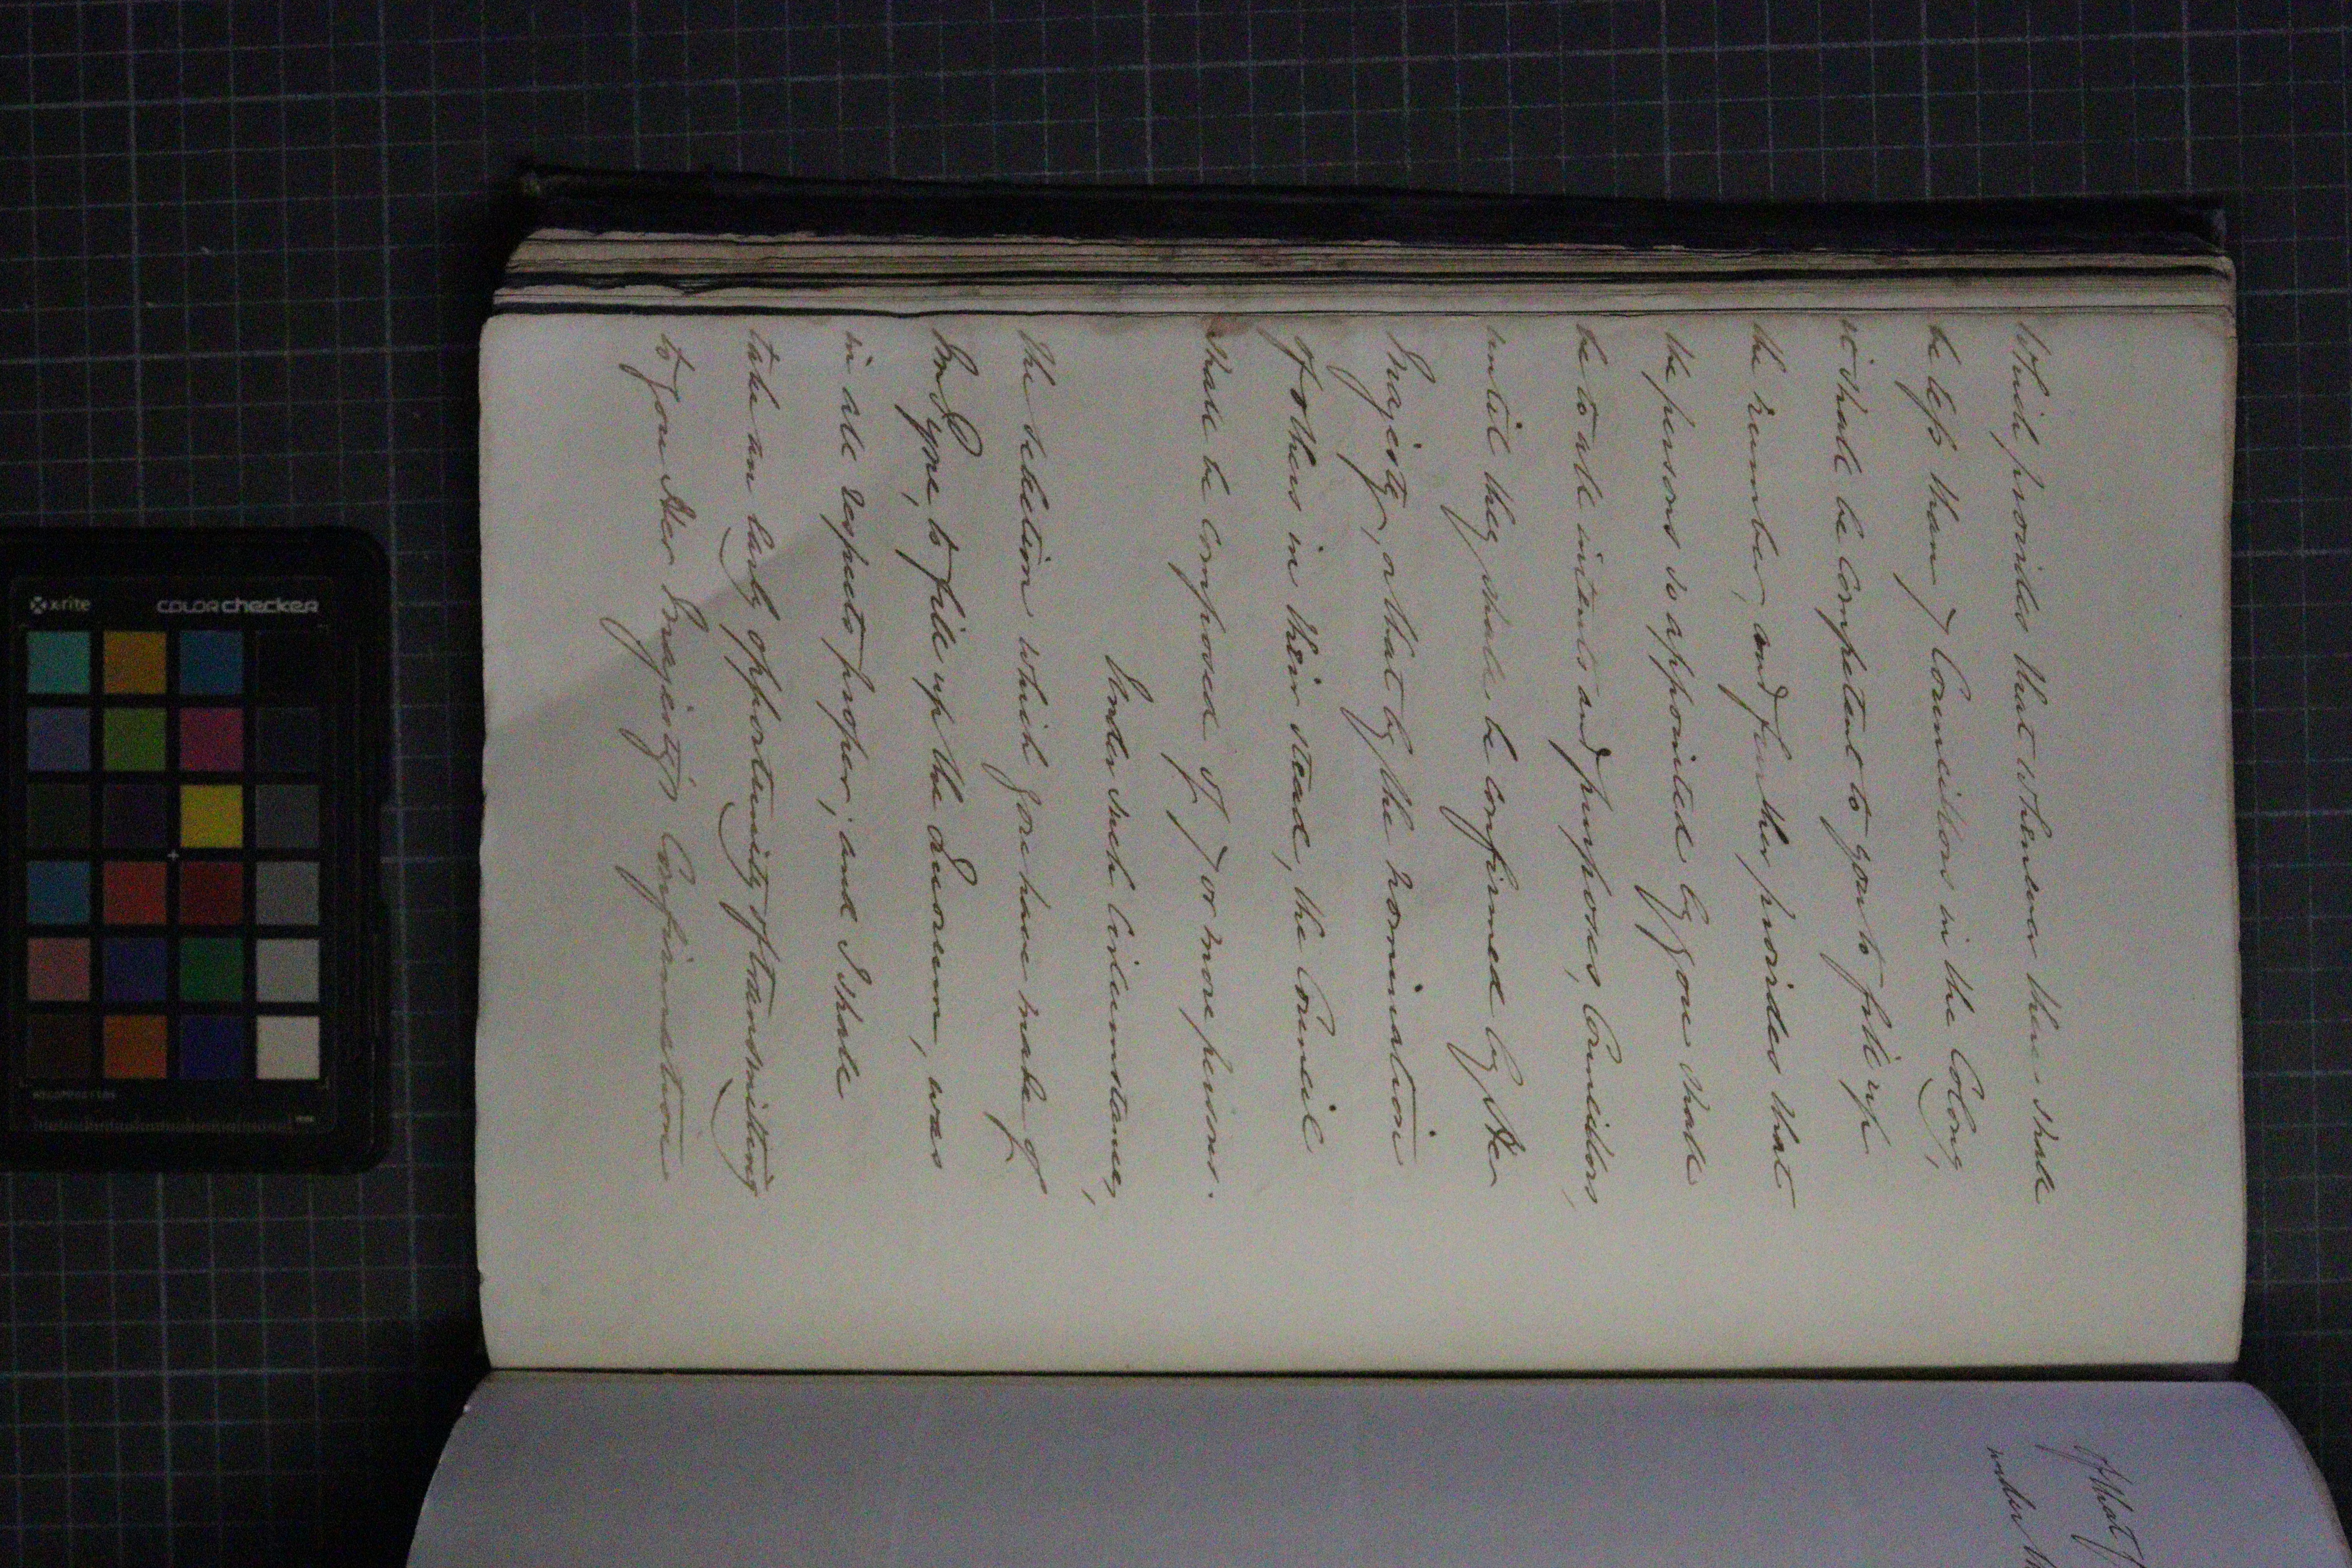 Which provides that whenever there shall
be less than 7 Councillors in the Colony,
it shall be competent to you to fill up
the number, and further provides that
the persons so appointed by you shall
be to all intents and purposes, Councillors,
until they shall be confirmed by Her
Majesty, or that by the nomination
of others in their stead, the Council
shall be composed of 7 or more persons.
Under such circumstances,
the selection which you have made of
to fill up the Quorum, was
in all respects proper, and I shall
take an early opportunity of transmitting
to you Her Majesty's Confirmation
of that
under
x-rite
colorchecker